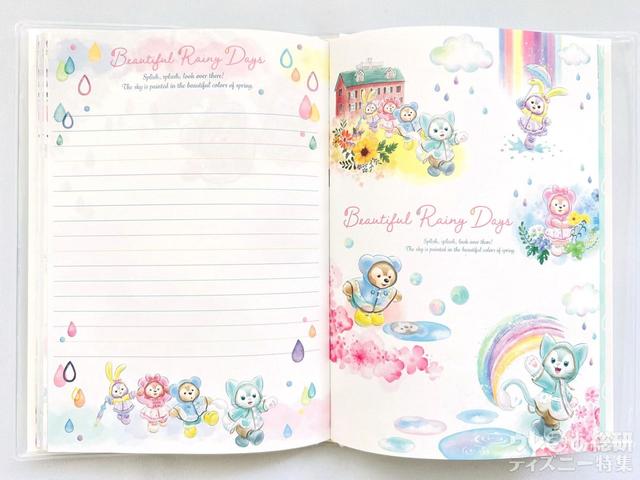 Beautiful Rainy Days
Splish, splash, look over there!
The sky is painted in the beautiful colors of spring.
Beautiful Rainy Days
Splish, splash, look over there!
The sky is painted in the beautiful colors of spring.
ウレぴあ総研
ディズニー特集